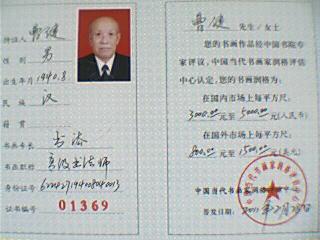 持证人 曹健
性别 男
出生年月 1940.8.
民族 汉
籍贯
书画专长 书法
书画职称 高级书法师
身份证号
证书编号 01369
曹健 先生/女士
您的书画作品经中国书院专
家评议,中国当代书画家润格评估
中心认定,您的书画润格为:
在国内市场上每平方尺:
3000.00元至5000元(人民币)
在国外市场上每平方尺:
800.00元至1500元(美元)
中国当代书画家润格评估中心
签发日期:2011年2月28日